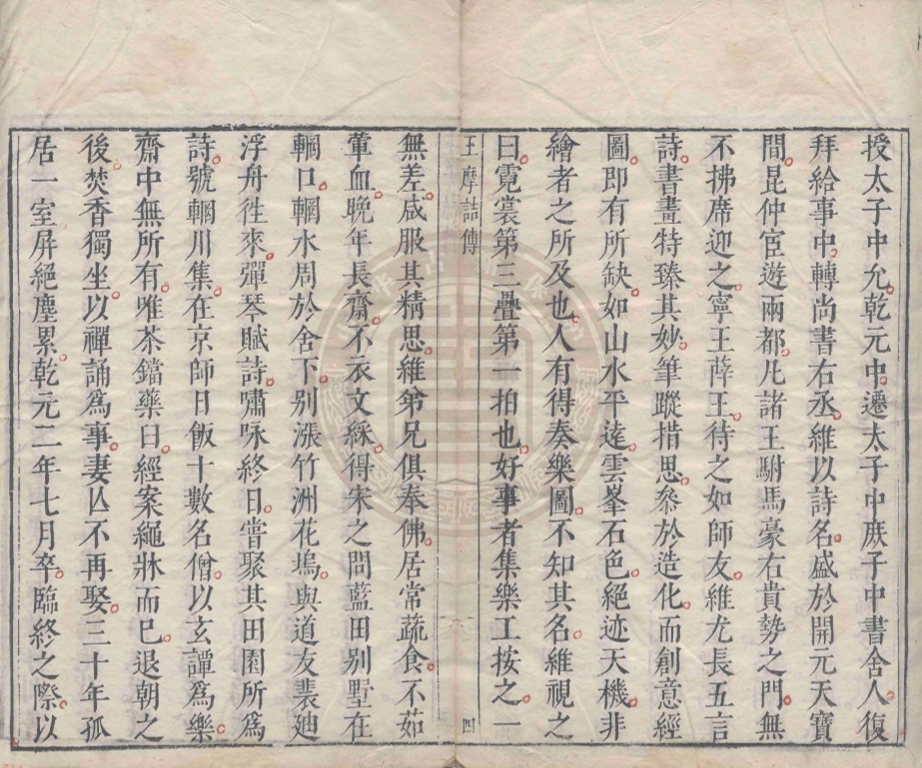 授太子中允乾元中遷太子中庶子中書舍人復
拜給事中轉尚書右丞維以詩名盛於開元天寶
間昆仲宦遊兩都凡諸王駙馬豪右貴勢之門無
不拂席迎之寧王薛王待之如師友維尤長五言
詩書畫特臻其妙筆蹤措思叅於造化而創意經
圖即有所缺如山水平遠雲峯石色絕迹天機非
繪者之所及也人有得奏樂圖不知其名維視之
曰霓裳第三疊第一拍也好事者集樂工按之一
王摩詰傳 四
無差咸服其精思維弟兄俱奉佛居常蔬食不茹
葷血晚年長齋不衣文綵得宋之問藍田别墅在
輞口輞水周於舍下别漲竹洲花塢與道友裴廸
浮舟徃來彈琴賦詩嘯咏終日嘗聚其田園所爲
詩號輞川集在京師日飯十數名僧以玄譚爲樂
齋中無所有唯茶鐺藥臼經案繩牀而已退朝之
後焚香獨坐以禪誦爲事妻亾不再娶三十年孤
居一室屏絕塵累乾元二年七月卒臨終之際以